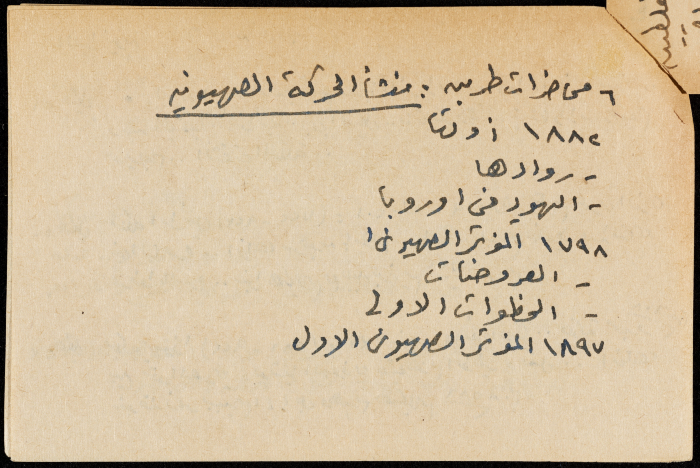 ٦ محاضرات طربيه : منشأ الحركة الصهيونيه
١٨٨٢ اودسا
- روادها
- اليهود في اوروبا
١٧٩٨ المؤتمر الصهيوني ١
- العروضات
- الخطوات الاولى
١٨٩٧ المؤتمر الصهيوني الاول